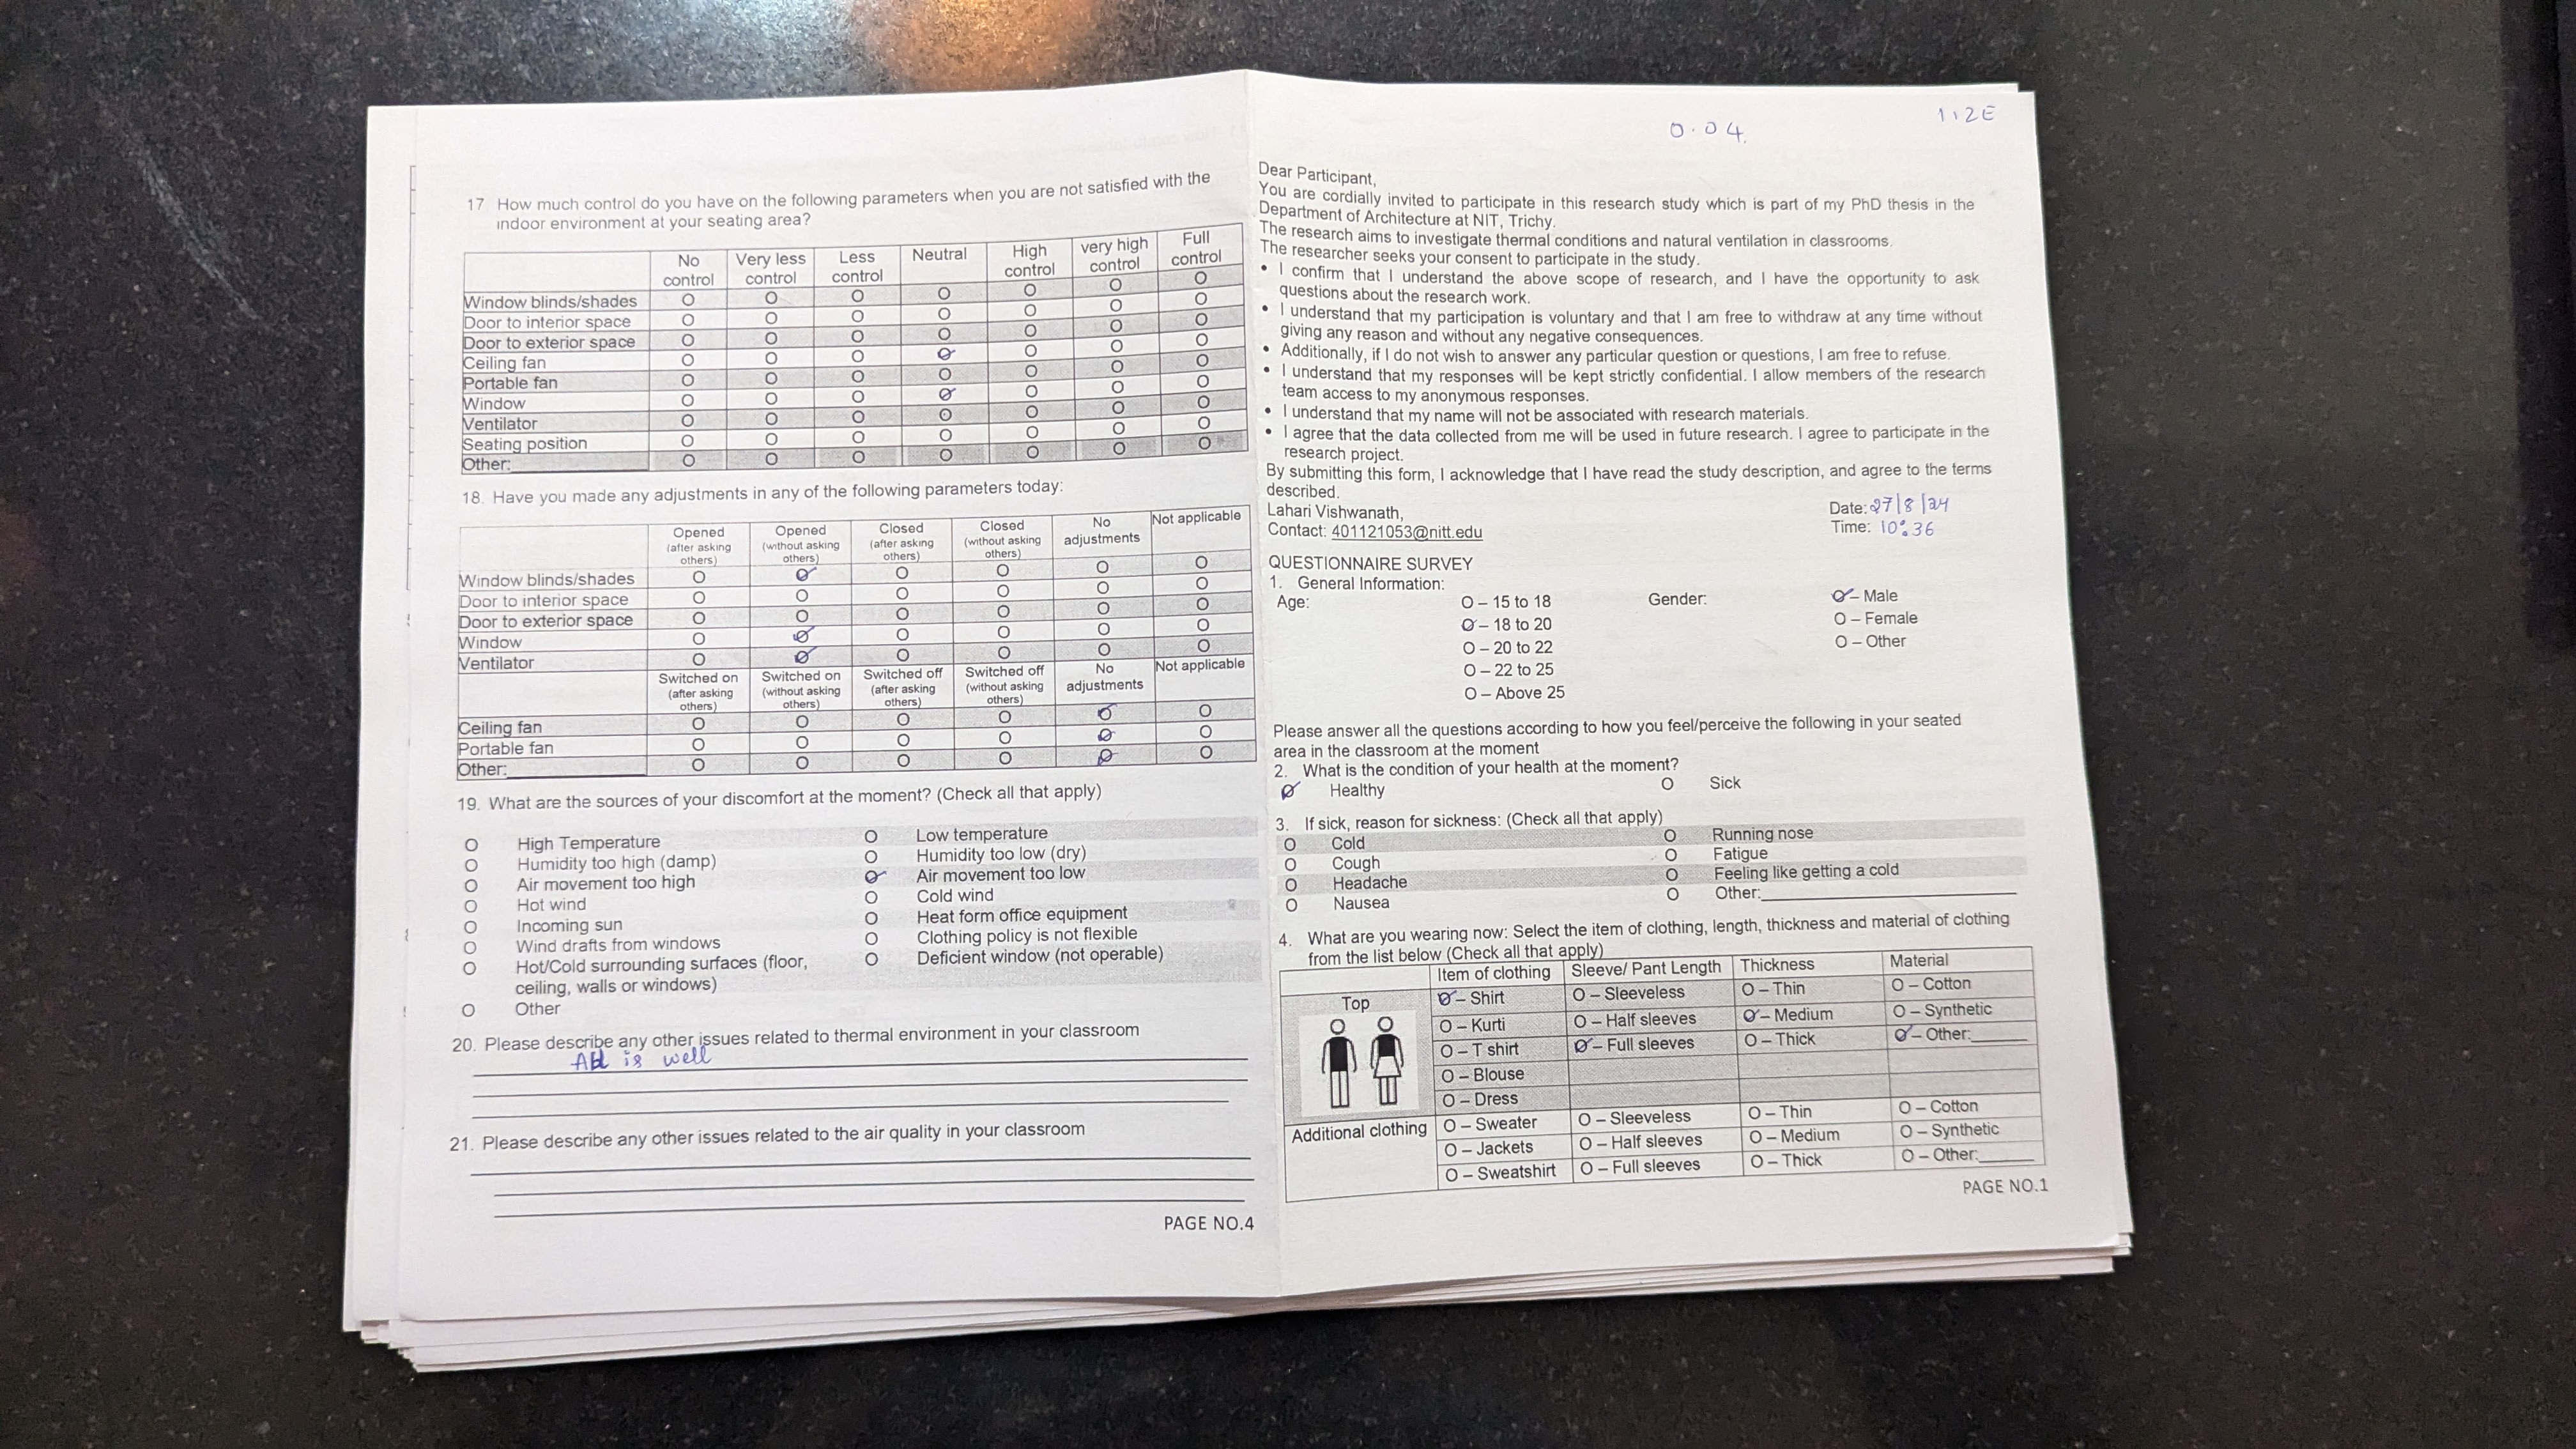 17 How much control do you have on the following parameters when you are not satisfied with the
indoor environment at your seating area?
No control Very less control Less control Neutral High control very high control Full control
Window blinds/shades O O O O O O O
Door to interior space O O O O O O O
Door to exterior space O O O O O O O
Ceiling fan O O O Ø O O O
Portable fan O O O O O O O
Window O O O Ø O O O
Ventilator O O O O O O O
Seating position O O O O O O O
Other:______ O O O O O O O
18. Have you made any adjustments in any of the following parameters today:
Opened (after asking others) Opened (without asking others) Closed (after asking others) Closed (without asking others) No adjustments Not applicable
Window blinds/shades O Ø O O O O
Door to interior space O O O O O O
Door to exterior space O O O O O O
Window O Ø O O O O
Ventilator O Ø O O O O
Switched on (after asking others) Switched on (without asking others) Switched off (after asking others) Switched off (without asking others) No adjustments Not applicable
Ceiling fan O O O O Ø O
Portable fan O O O O Ø O
Other:______ O O O O Ø O
19. What are the sources of your discomfort at the moment? (Check all that apply)
O High Temperature O Low temperature
O Humidity too high (damp) O Humidity too low (dry)
O Air movement too high Ø Air movement too low
O Hot wind O Cold wind
O Incoming sun O Heat form office equipment
O Wind drafts from windows O Clothing policy is not flexible
O Hot/Cold surrounding surfaces (floor, O Deficient window (not operable)
ceiling, walls or windows)
O Other
20. Please describe any other issues related to thermal environment in your classroom
All is well
21. Please describe any other issues related to the air quality in your classroom
PAGE NO.4
0.04.
112E
Dear Participant,
You are cordially invited to participate in this research study which is part of my PhD thesis in the
Department of Architecture at NIT, Trichy.
The research aims to investigate thermal conditions and natural ventilation in classrooms.
The researcher seeks your consent to participate in the study.
• I confirm that I understand the above scope of research, and I have the opportunity to ask
questions about the research work.
• I understand that my participation is voluntary and that I am free to withdraw at any time without
giving any reason and without any negative consequences.
• Additionally, if I do not wish to answer any particular question or questions, I am free to refuse.
• I understand that my responses will be kept strictly confidential. I allow members of the research
team access to my anonymous responses.
• I understand that my name will not be associated with research materials.
• I agree that the data collected from me will be used in future research. I agree to participate in the
research project.
By submitting this form, I acknowledge that I have read the study description, and agree to the terms
described.
Lahari Vishwanath, Date: 27/8/24
Contact: 401121053@nitt.edu Time: 10:36
QUESTIONNAIRE SURVEY
1. General Information:
Age: O – 15 to 18 Gender: Ø – Male
Ø – 18 to 20 O – Female
O – 20 to 22 O – Other
O – 22 to 25
O – Above 25
Please answer all the questions according to how you feel/perceive the following in your seated
area in the classroom at the moment
2. What is the condition of your health at the moment?
Ø Healthy O Sick
3. If sick, reason for sickness: (Check all that apply)
O Cold O Running nose
O Cough O Fatigue
O Headache O Feeling like getting a cold
O Nausea O Other:______
4. What are you wearing now: Select the item of clothing, length, thickness and material of clothing
from the list below (Check all that apply)
Item of clothing Sleeve/ Pant Length Thickness Material
Top Ø – Shirt O – Sleeveless O – Thin O – Cotton
O – Kurti O – Half sleeves Ø – Medium O – Synthetic
O – T shirt Ø – Full sleeves O – Thick Ø – Other:______
O – Blouse
O – Dress
Additional clothing O – Sweater O – Sleeveless O – Thin O – Cotton
O – Jackets O – Half sleeves O – Medium O – Synthetic
O – Sweatshirt O – Full sleeves O – Thick O – Other:______
PAGE NO.1